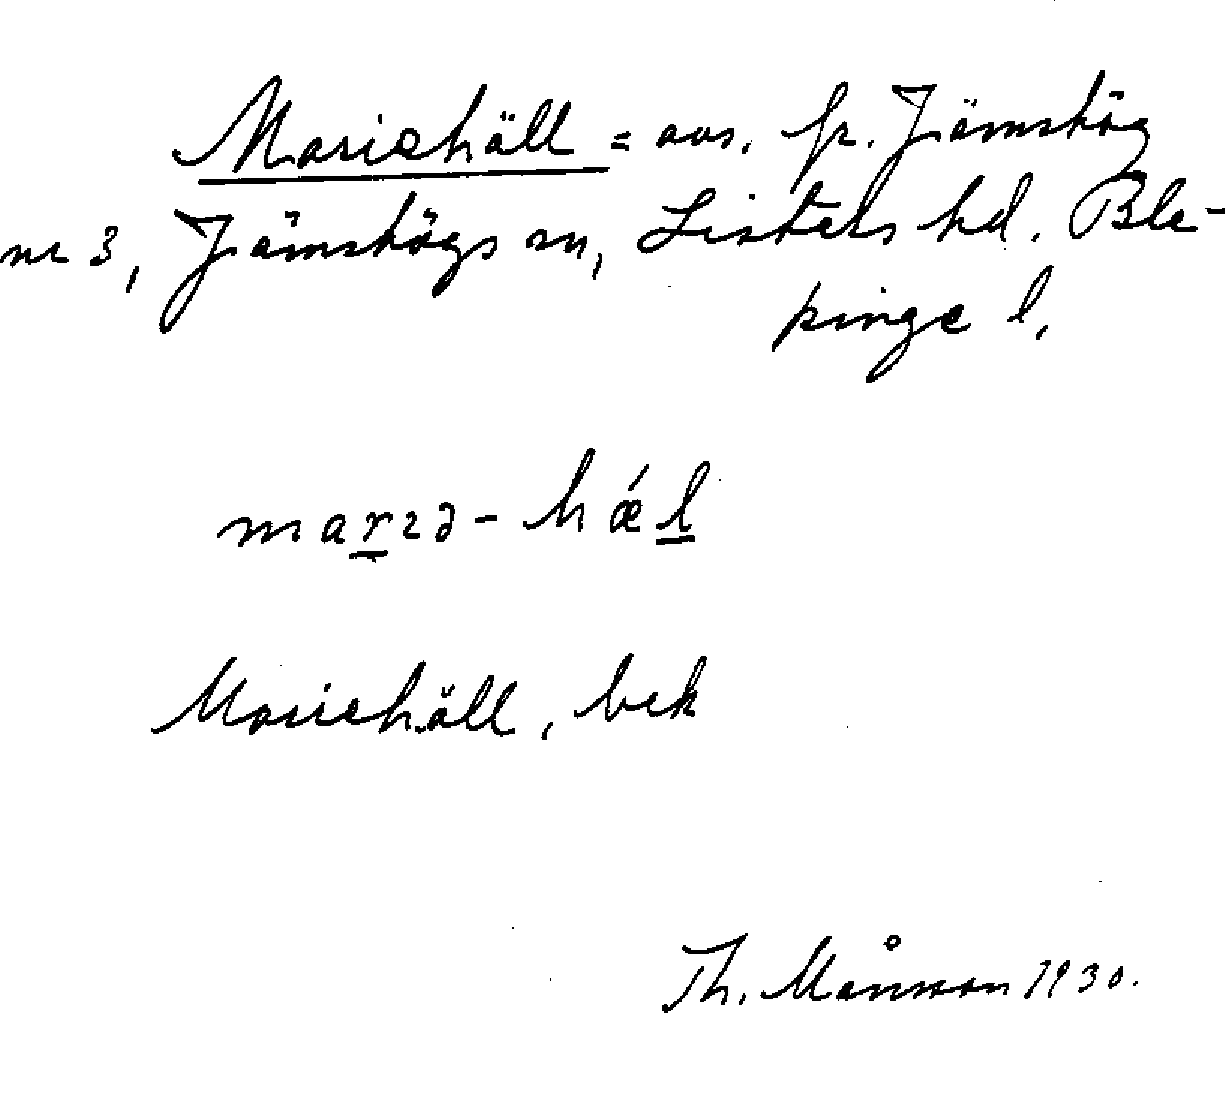 Mariehäll = avs. fr. Jämshög
nr 3, Jämshögs sn, Listers hd. Ble-
kinge l.
marɪə-hǽl
Mariehäll, bek
Th. Månsson 1930.